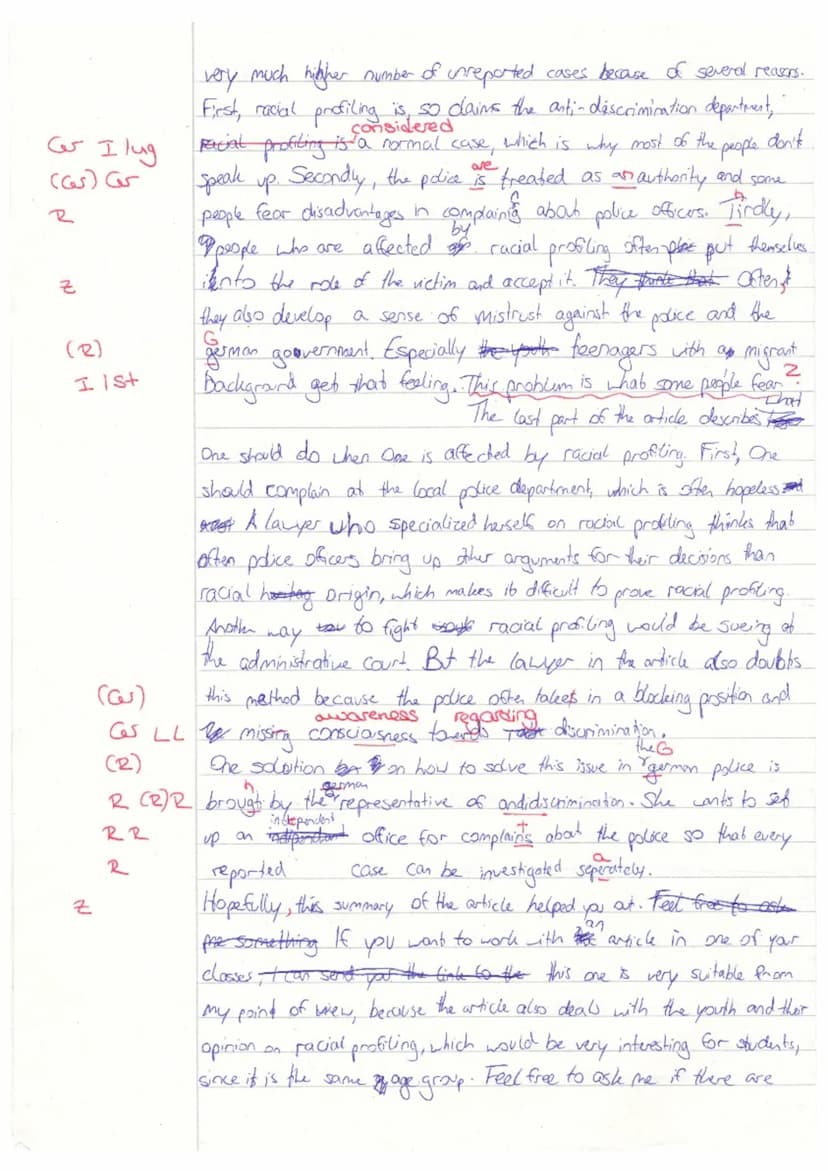 very much higher number of unreported cases because of several reasons.
First, racial profiling is, so claims the anti-discrimination department,
considered
Gr I lug racial profiling is a normal case, which is why most of the people don't
are
(Gr) Gr speak up. Secondly, the police is treated as an authority and some
R people fear disadvantages in complaining about police officers. Tirdly,
h
by
people who are affected racial profiling often put themselves
Z into the role of the victim and accept it. They think that Often,
they also develop a sense of mistrust against the police and the
G
(R) german goovernment. Especially the youth teenagers with a migrant
I 1 St background get that feeling. This problem is what some people fear ?
The last part of the article describes what
One should do when One is affected by racial profiling. First, One
should complain at the local police department, which is often hopeless
A lawyer who specialized herself on racial profiling thinks that
often police officers bring up other arguments for their decisions than
racial origin, which makes it difficult to prove racial profiling.
Another way to fight racial profiling would be sueing at
the administrative court. But the lawyer in the article also doubts
(Gr) this method because the police often takes in a blocking position and
awareness regarding
Gr LL missing consciasness towards discrimination.
the G
(R) One solotion on how to solve this issue in german police is
h german
R (R) R brougt by the representative of andidiscrimination. She wants to set
independent
R R up an indipendant office for complains about the police so that every
t
a
R reported case can be investigated seperately.
Z Hopefully, this summary of the article helped you out. Feel free to ask
an
me something If you want to work with article in one of your
classes, I can send you the link to the this one is very suitable from
my point of view, because the article also deals with the youth and their
opinion on racial profiling, which would be very interesting for students,
since it is the same age group. Feel free to ask me if there are